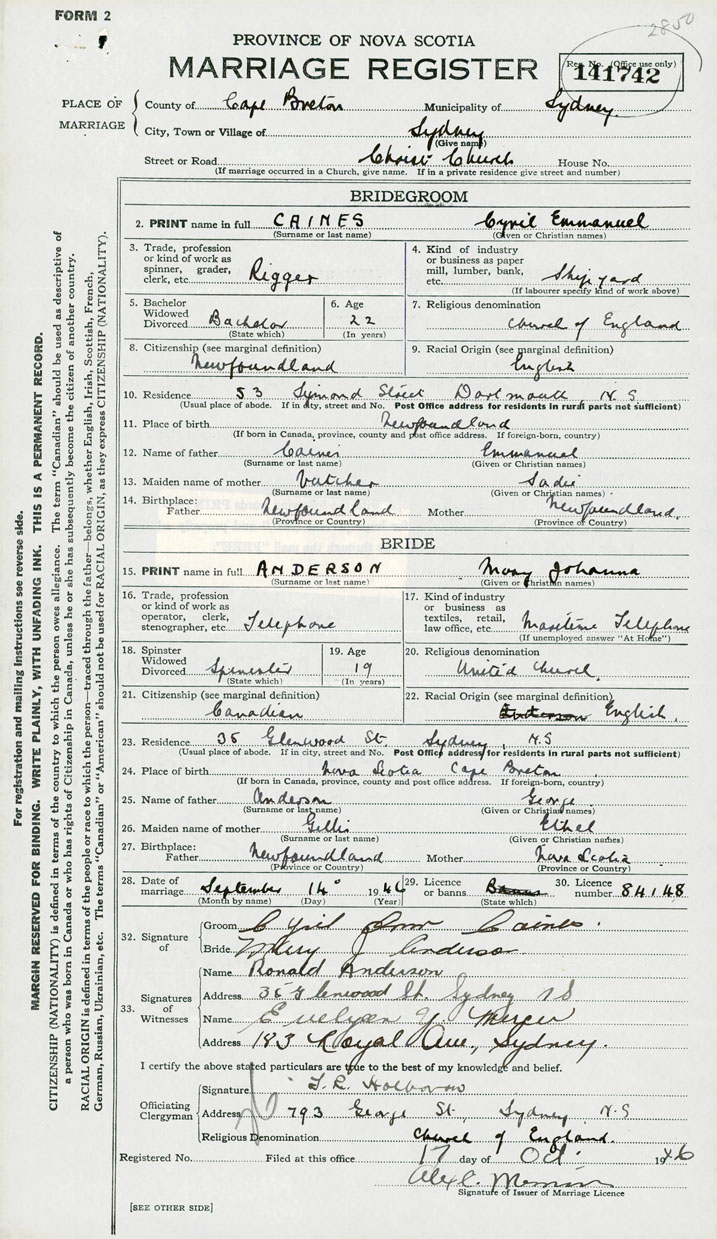 FORM 2
2850
PROVINCE OF NOVA SCOTIA
MARRIAGE REGISTER
Reg. No. (Office use only)
141742
PLACE OF MARRIAGE
County of Cape Breton Municipality of Sydney
City, Town or Village of Sydney
(Give name)
Street or Road Christ Church House No.
(If marriage occurred in a Church, give name. If in a private residence give street and number)
BRIDEGROOM
2. PRINT name in full CAINES Cyril Emmanuel
(Surname or last name) (Given or Christian names)
3. Trade, profession or kind of work as spinner, grader, clerk, etc. Rigger
4. Kind of industry or business as paper mill, lumber, bank, etc. Shipyard
(If labourer specify kind of work above)
5. Bachelor Widowed Divorced Bachelor
(State which)
6. Age 22
(In years)
7. Religious denomination Church of England
8. Citizenship (see marginal definition) Newfoundland
9. Racial Origin (see marginal definition) English
10. Residence 53 Symond Street Dartmouth, N.S
(Usual place of abode. If in city, street and No. Post Office address for residents in rural parts not sufficient)
11. Place of birth Newfoundland
(If born in Canada, province, county and post office address. If foreign-born, country)
12. Name of father Caines Emmanuel
(Surname or last name) (Given or Christian names)
13. Maiden name of mother Vatcher Sadie
(Surname or last name) (Given or Christian names)
14. Birthplace: Father Newfoundland Mother Newfoundland.
(Province or Country) (Province or Country)
BRIDE
15. PRINT name in full ANDERSON Mary Johanna
(Surname or last name) (Given or Christian names)
16. Trade, profession or kind of work as operator, clerk, stenographer, etc. Telephone
17. Kind of industry or business as textiles, retail, law office, etc. Maritime Telephone
(If unemployed answer "At Home")
18. Spinster Widowed Divorced Spinster
(State which)
19. Age 19
(In years)
20. Religious denomination United Church.
21. Citizenship (see marginal definition) Canadian
22. Racial Origin (see marginal definition) Anderson English.
23. Residence 35 Glenwood St. Sydney, N.S
(Usual place of abode. If in city, street and No. Post Office address for residents in rural parts not sufficient)
24. Place of birth Nova Scotia Cape Breton
(If born in Canada, province, county and post office address. If foreign-born, country)
25. Name of father Anderson George
(Surname or last name) (Given or Christian names)
26. Maiden name of mother Gillis Ethel
(Surname or last name) (Given or Christian names)
27. Birthplace: Father Newfoundland Mother Nova Scotia
(Province or Country) (Province or Country)
28. Date of marriage September 14 1946
(Month by name) (Day) (Year)
29. Licence or banns Banns
(State which)
30. Licence number 84148
32. Signature of
Groom Cyril Caines.
Bride Mary J Anderson
33. Signatures of Witnesses
Name Ronald Anderson
Address 35 Glenwood St. Sydney NS
Name Evelyen Y. Mercer
Address 183 Royal Ave., Sydney.
I certify the above stated particulars are true to the best of my knowledge and belief.
Officiating Clergyman
Signature T. R. Holborow
Address 793 George St, Sydney, N.S
Religious Denomination Church of England.
Registered No. Filed at this office 17 day of Oct. 1946
Signature of Issuer of Marriage Licence
[SEE OTHER SIDE]
For registration and mailing instructions see reverse side.
MARGIN RESERVED FOR BINDING. WRITE PLAINLY, WITH UNFADING INK. THIS IS A PERMANENT RECORD.
CITIZENSHIP (NATIONALITY) is defined in terms of the country to which the person owes allegiance. The term "Canadian" should be used as descriptive of
a person who was born in Canada or who has rights of Citizenship in Canada, unless he or she has subsequently become the citizen of another country.
RACIAL ORIGIN is defined in terms of the people or race to which the person—traced through the father—belongs, whether English, Irish, Scottish, French,
German, Russian, Ukrainian, etc. The terms "Canadian" or "American" should not be used for RACIAL ORIGIN, as they express CITIZENSHIP (NATIONALITY).